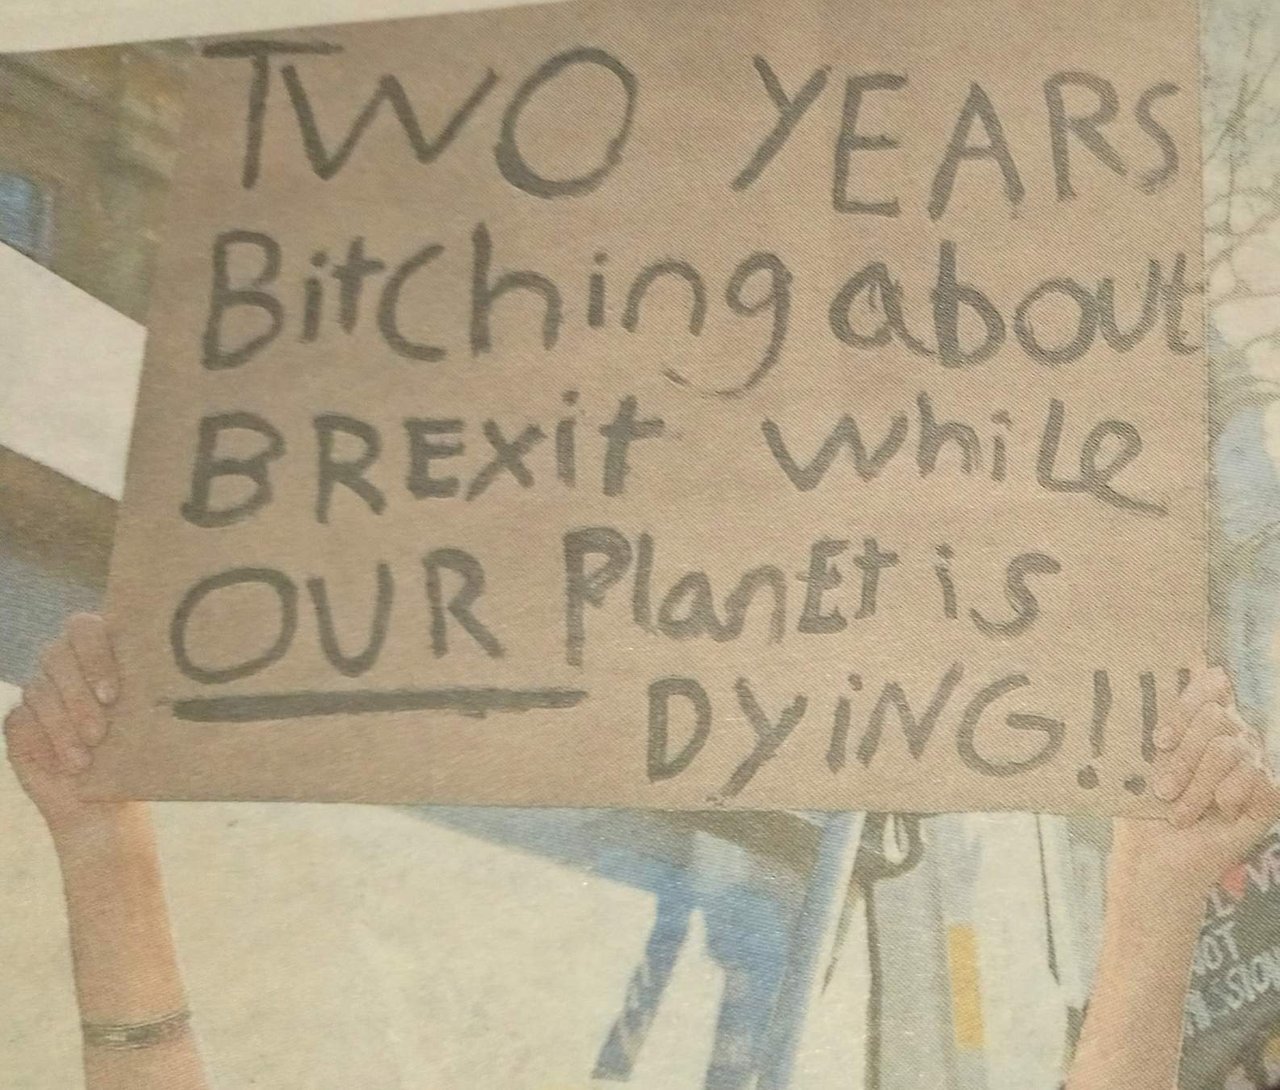 TWO YEARS
Bitching about
BREXit while
OUR PlanEt is
DYiNG!!
NOT